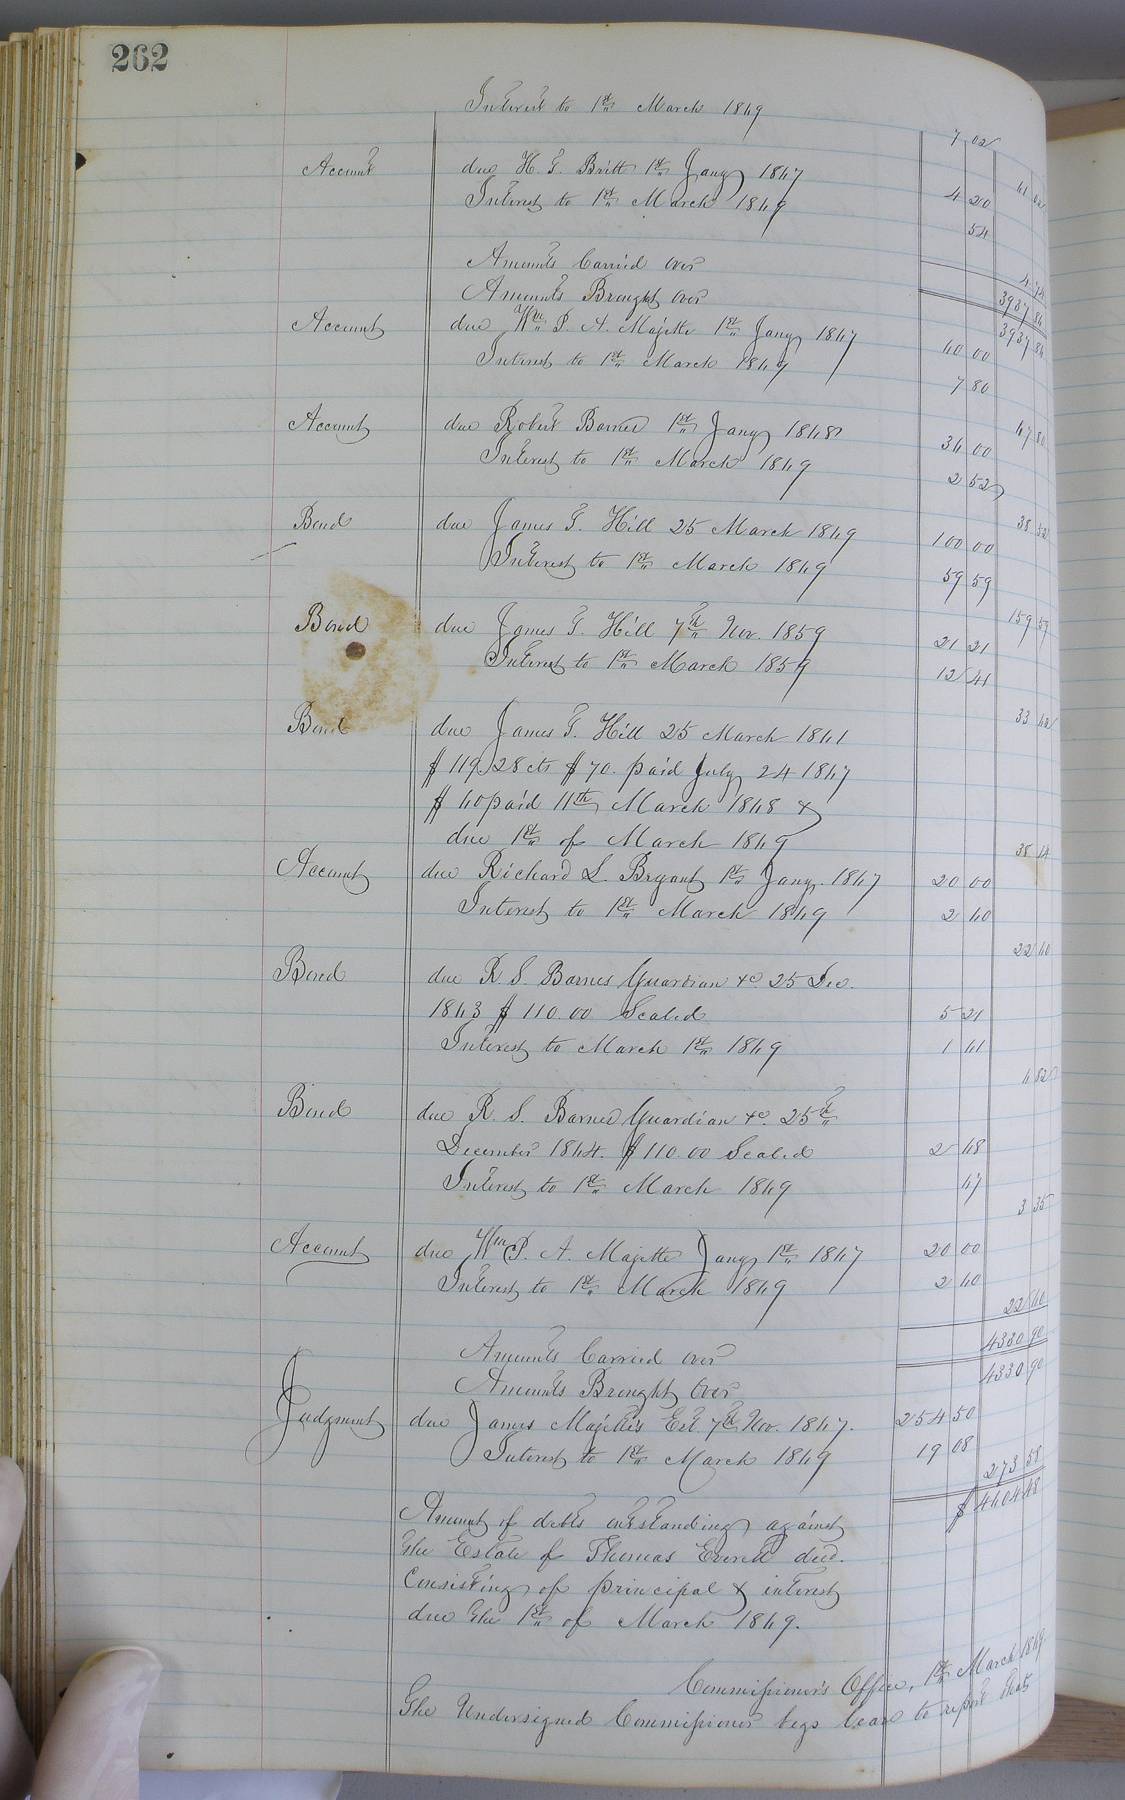 262
Interest to 1st March 1869 7 02
61 02
Account due H. G. Britt 1st Jany 1867 4 20
Interest to 1st March 1869 54
4 74
Amounts Carried over 3937 86
Amounts Brought over 3937 86
Account due Wm P. A. Majette 1st Jany 1867 60 00
Interest to 1st March 1869 7 80
67 80
Account due Robert Barnes 1st Jany 1868 36 00
Interest to 1st March 1869 2 52
38 52
Bond due James G. Hill 25 March 1869 100 00
Interest to 1st March 1869 59 59
159 59
Bond due James G. Hill 7th Nov. 1859 21 21
Interest to 1st March 1859 12 41
33 62
Bond due James G. Hill 25 March 1861
$119.28 cts $70. paid July 24 1867
$60 paid 11th March 1868 &
due 1st of March 1869 38 14
Account due Richard L. Bryant 1st Jany. 1867 20 00
Interest to 1st March 1869 2 60
22 60
Bond due R. S. Barnes Guardian &c. 25 Dec.
1863 $110.00 Scaled 5 21
Interest to March 1st 1869 1 61
6 82
Bond due R. S. Barnes Guardian &c. 25th
December 1864. $110.00 Scaled 2 68
Interest to 1st March 1869 67
3 35
Account due Wm P. A. Majette Jany 1st 1867 20 00
Interest to 1st March 1869 2 60
22 60
Amounts Carried over 4330 90
Amounts Brought Over 4330 90
Judgment due James Majette's Est 7th Nov. 1867. 254 50
Interest to 1st March 1869 19 08
273 58
$ 4604 48
Amount of debts outstanding against
the Estate of Thomas Everett decd.
Consisting of principal & interest
due the 1st of March 1869.
Commissioner's Office, 1st March 1869
The Undersigned Commissioner begs leave to report that